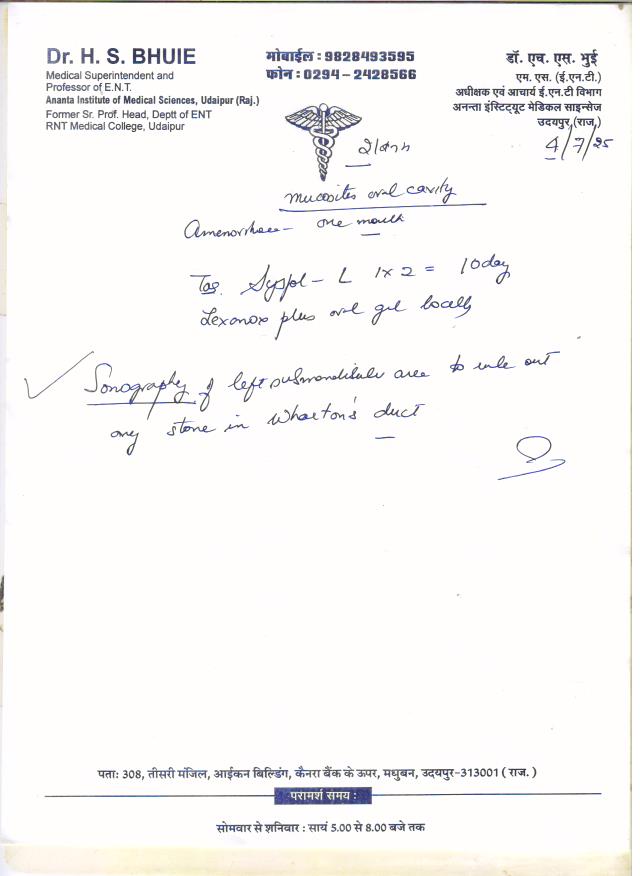 Dr. H. S. BHUIE
Medical Superintendent and
Professor of E.N.T.
Ananta Institute of Medical Sciences, Udaipur (Raj.)
Former Sr. Prof. Head, Deptt of ENT
RNT Medical College, Udaipur
मोबाईल : 9828493595
फोन : 0294 - 2428566
डॉ. एच. एस. भुई
एम. एस. (ई.एन.टी.)
अधीक्षक एवं आचार्य ई.एन.टी विभाग
अनन्ता इंस्टिट्यूट मेडिकल साइन्सेज
उदयपुर,(राज.)
4/7/25
mucosites oral cavity
Amenorrhoea - one month
Tab. - L 1x2 = 10day
Lexanox plus oral gel locally
Sonography of left submandibular area to rule out
any stone in Wharton's duct
पताः 308, तीसरी मंजिल, आईकन बिल्डिंग, कैनरा बैंक के ऊपर, मधुबन, उदयपुर-313001 ( राज. )
परामर्श समय :
सोमवार से शनिवार : सायं 5.00 से 8.00 बजे तक